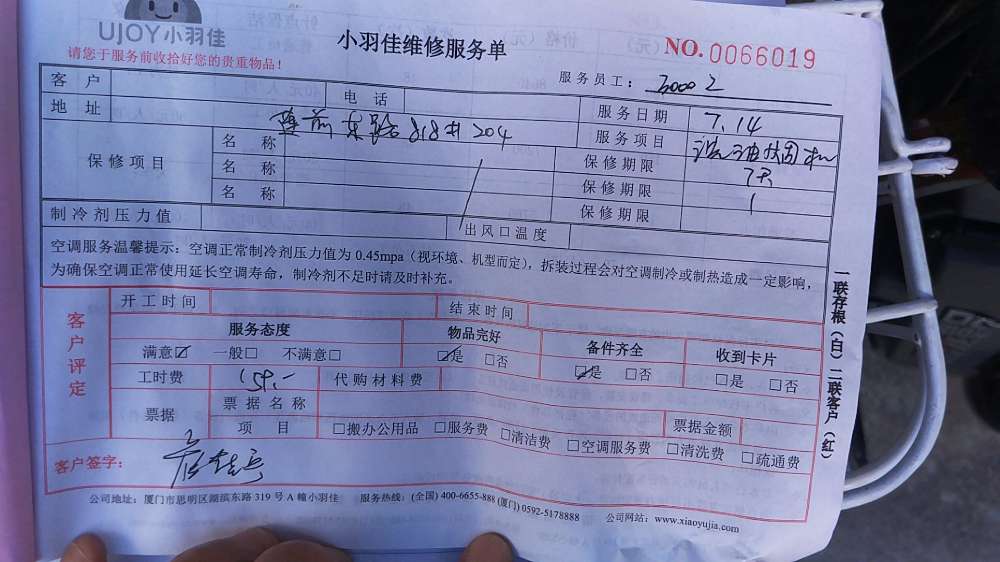 UJOY小羽佳
小羽佳维修服务单
NO.0066019
请您于服务前收拾好您的贵重物品！
服务员工：30002
客户 电话 服务日期 7.14
地址 东路818#204 服务项目
保修项目 名称 保修期限 7天
名称 保修期限
名称 保修期限
制冷剂压力值 出风口温度
空调服务温馨提示：空调正常制冷剂压力值为 0.45mpa（视环境、机型而定），拆装过程会对空调制冷或制热造成一定影响，
为确保空调正常使用延长空调寿命，制冷剂不足时请及时补充。
客户评定
开工时间 结束时间
服务态度 物品完好 备件齐全 收到卡片
满意☑ 一般□ 不满意□ ☑是 □否 ☑是 □否 □是 □否
工时费 代购材料费
票据 票据名称 票据金额
项目 □搬办公用品 □服务费 □清洁费 □空调服务费 □清洗费 □疏通费
客户签字：
公司地址：厦门市思明区湖滨东路 319 号 A 幢小羽佳 服务热线：(全国) 400-6655-888 (厦门) 0592-5178888 公司网站：www.xiaoyujia.com
一联存根（白）二联客户（红）